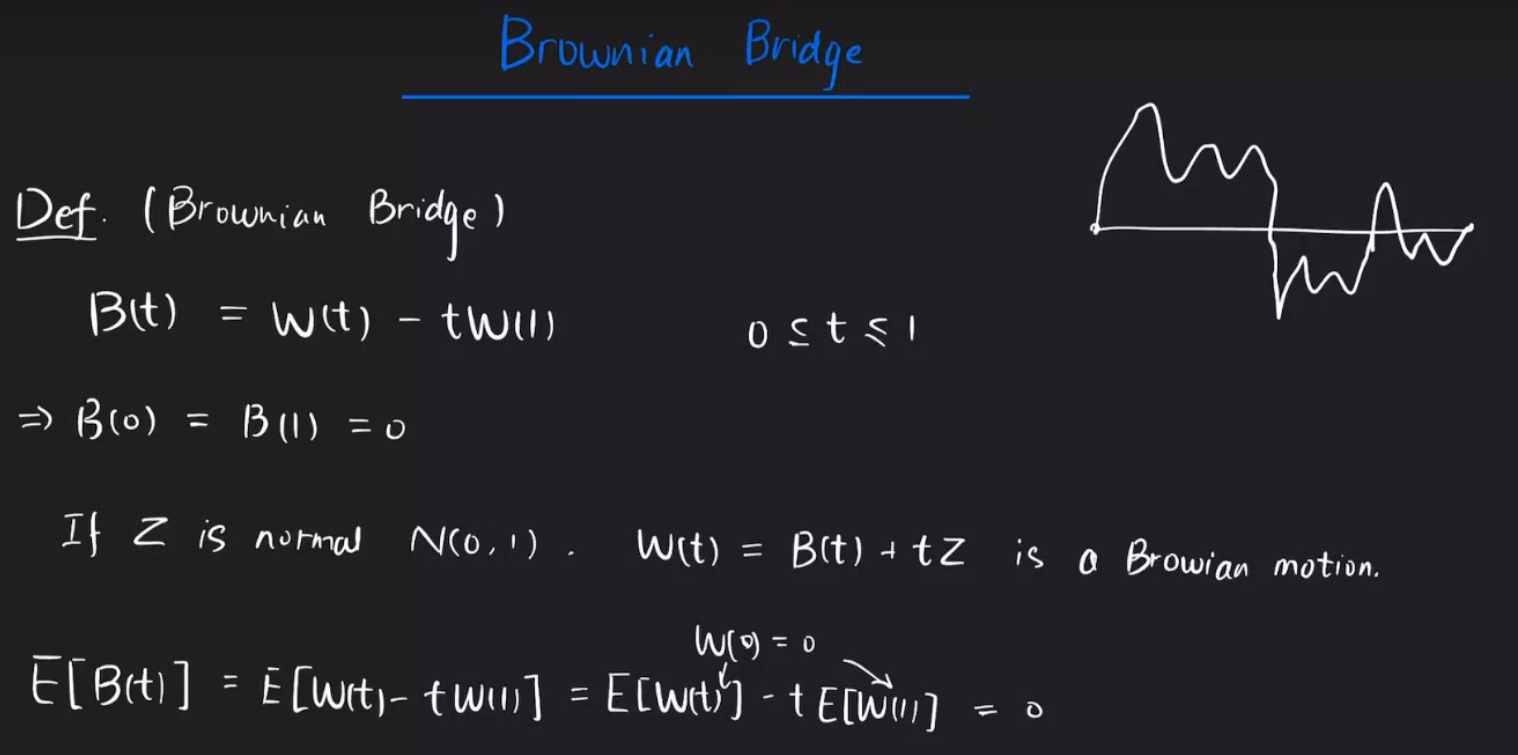 Brownian Bridge
Def. (Brownian Bridge)
B(t) = W(t) - tW(1) 0 ≤ t ≤ 1
⇒ B(0) = B(1) = 0
If Z is normal N(0,1). W(t) = B(t) + tZ is a Browian motion.
W(0) = 0
E[B(t)] = E[W(t) - tW(1)] = E[W(t)] - tE[W(1)] = 0